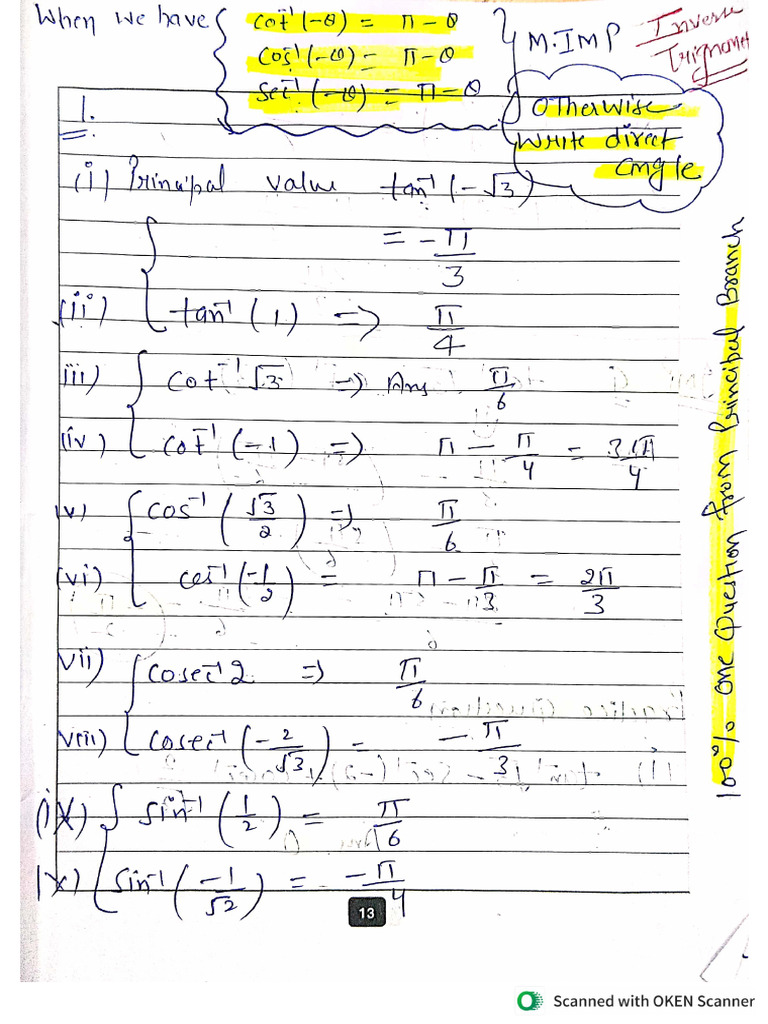 When we have
cot⁻¹(-θ) = π - θ
cos⁻¹(-θ) = π - θ
sec⁻¹(-θ) = π - θ
M.IMP
Inverse
Otherwise
write direct
angle
1.
(i) Principal value tan⁻¹(-√3)
= -π/3
(ii) tan⁻¹(1) => π/4
iii) cot⁻¹√3 => Ans π/6
(iv) cot⁻¹(-1) => π - π/4 = 3π/4
v) cos⁻¹(√3/2) => π/6
(vi) cos⁻¹(-1/2) = π - π/3 = 2π/3
vii) cosec⁻¹2 => π/6
viii) cosec⁻¹(-2/√3) = -π/3
(ix) sin⁻¹(1/2) = π/6
ix) sin⁻¹(-1/√2) = -π/4
100% one Question from Principal Branch
13
Scanned with OKEN Scanner